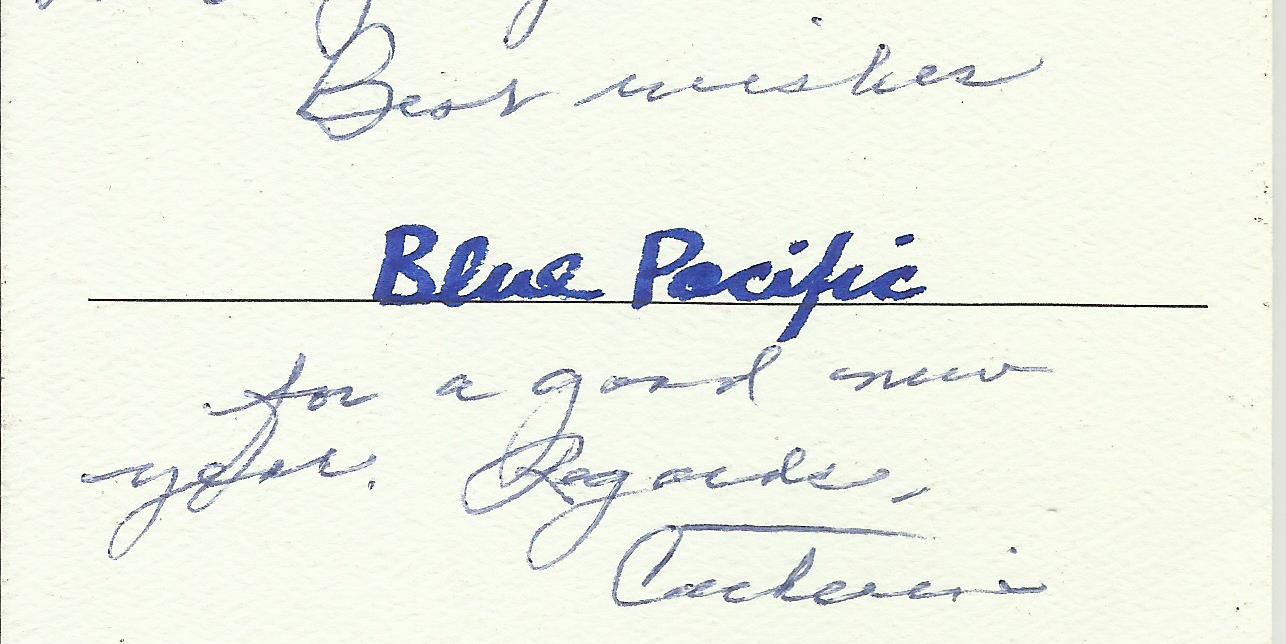 Best wishes
Blue Pacific
for a good new
year. Regards,
Catherine